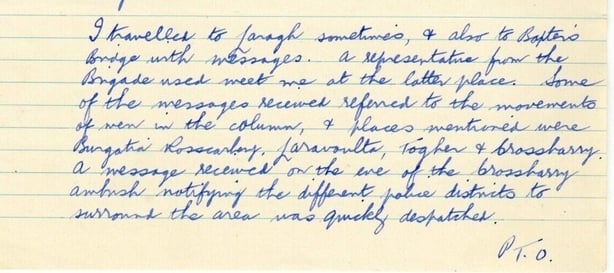 I travelled to Laragh sometimes, & also to Baxter's
Bridge with messages. A representative from the
Brigade used meet me at the latter place. Some
of the messages received referred to the movements
of men in the column, & places mentioned were
Burgatia Rosscarbery, Laravoulta, Togher & Crossbarry.
A message received on the eve of the Crossbarry
ambush notifying the different police districts to
surround the area was quickly despatched.
P.T.O.